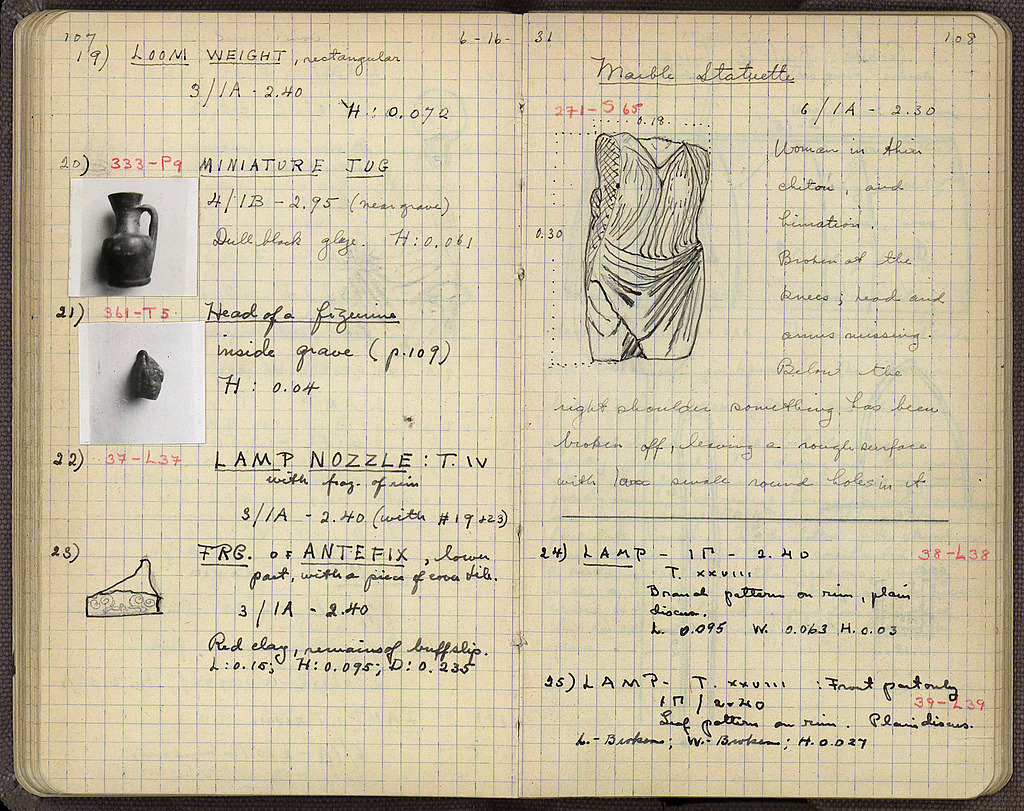 107
6-16-
19) LOOM WEIGHT, rectangular
3/1A - 2.40
H: 0.072
20) 333-P9 MINIATURE JUG
4/1B - 2.95 (near grave)
Dull black glaze. H: 0.061
21) 361-T5 Head of a figurine
inside grave (p. 109)
H: 0.04
22) 37-L37 LAMP NOZZLE: T. IV
with frag. of rim
3/1A - 2.40 (with #19 & 23)
23) FRG. OF ANTEFIX, lower
part, with a piece of cover tile.
3/1A - 2.40
Red clay, remains of buff slip.
L: 0.15; H: 0.095; D: 0.235
31
108
Marble Statuette
271-S 65
6/1A - 2.30
0.18
0.30
Woman in thin
chiton, and
himation.
Broken at the
knees; head and
arms missing.
Below the
right shoulder something has been
broken off, leaving a rough surface
with small round holes in it
24) LAMP - 1Γ - 2.40 38-L38
T. XXVIII
Brand pattern on rim, plain
discus.
L. 0.095 W. 0.063 H. 0.03
25) LAMP - T. XXVIII : Front part only
1Γ / 2.40 39-L39
Leaf pattern on rim. Plain discus.
L. - Broken; W. - Broken; H. 0.027